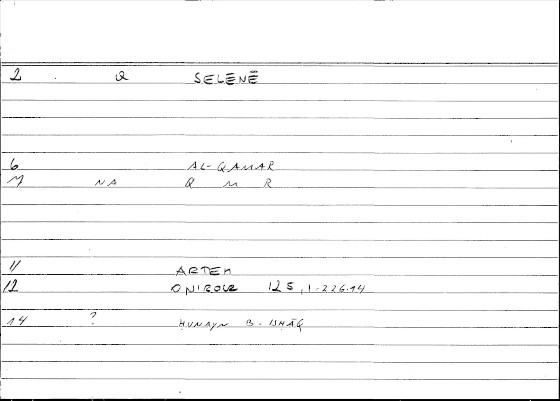 2 a SELĒNĒ
6 AL-QAMAR
7 NA Q M R
11 ARTEM
12 ONIROCR 125,1-226.14
14 ? ḤUNAYN B. ISḤĀQ